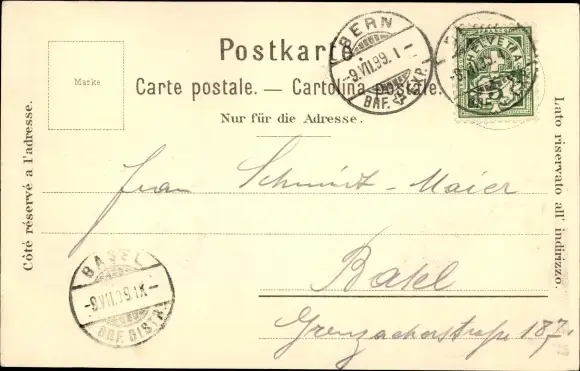 Postkarte
Marke
Carte postale. — Cartolina postale.
Nur für die Adresse.
BERN
-9.VII.99. I -
BRF. EXP.
HELVETIA
5
Côté réservé a l'adresse.
Lato riservato all' indirizzo.
Frau Schmidt-Maier
Basel
Grenzacherstraße 187.
BASEL
BRF. DISTR.